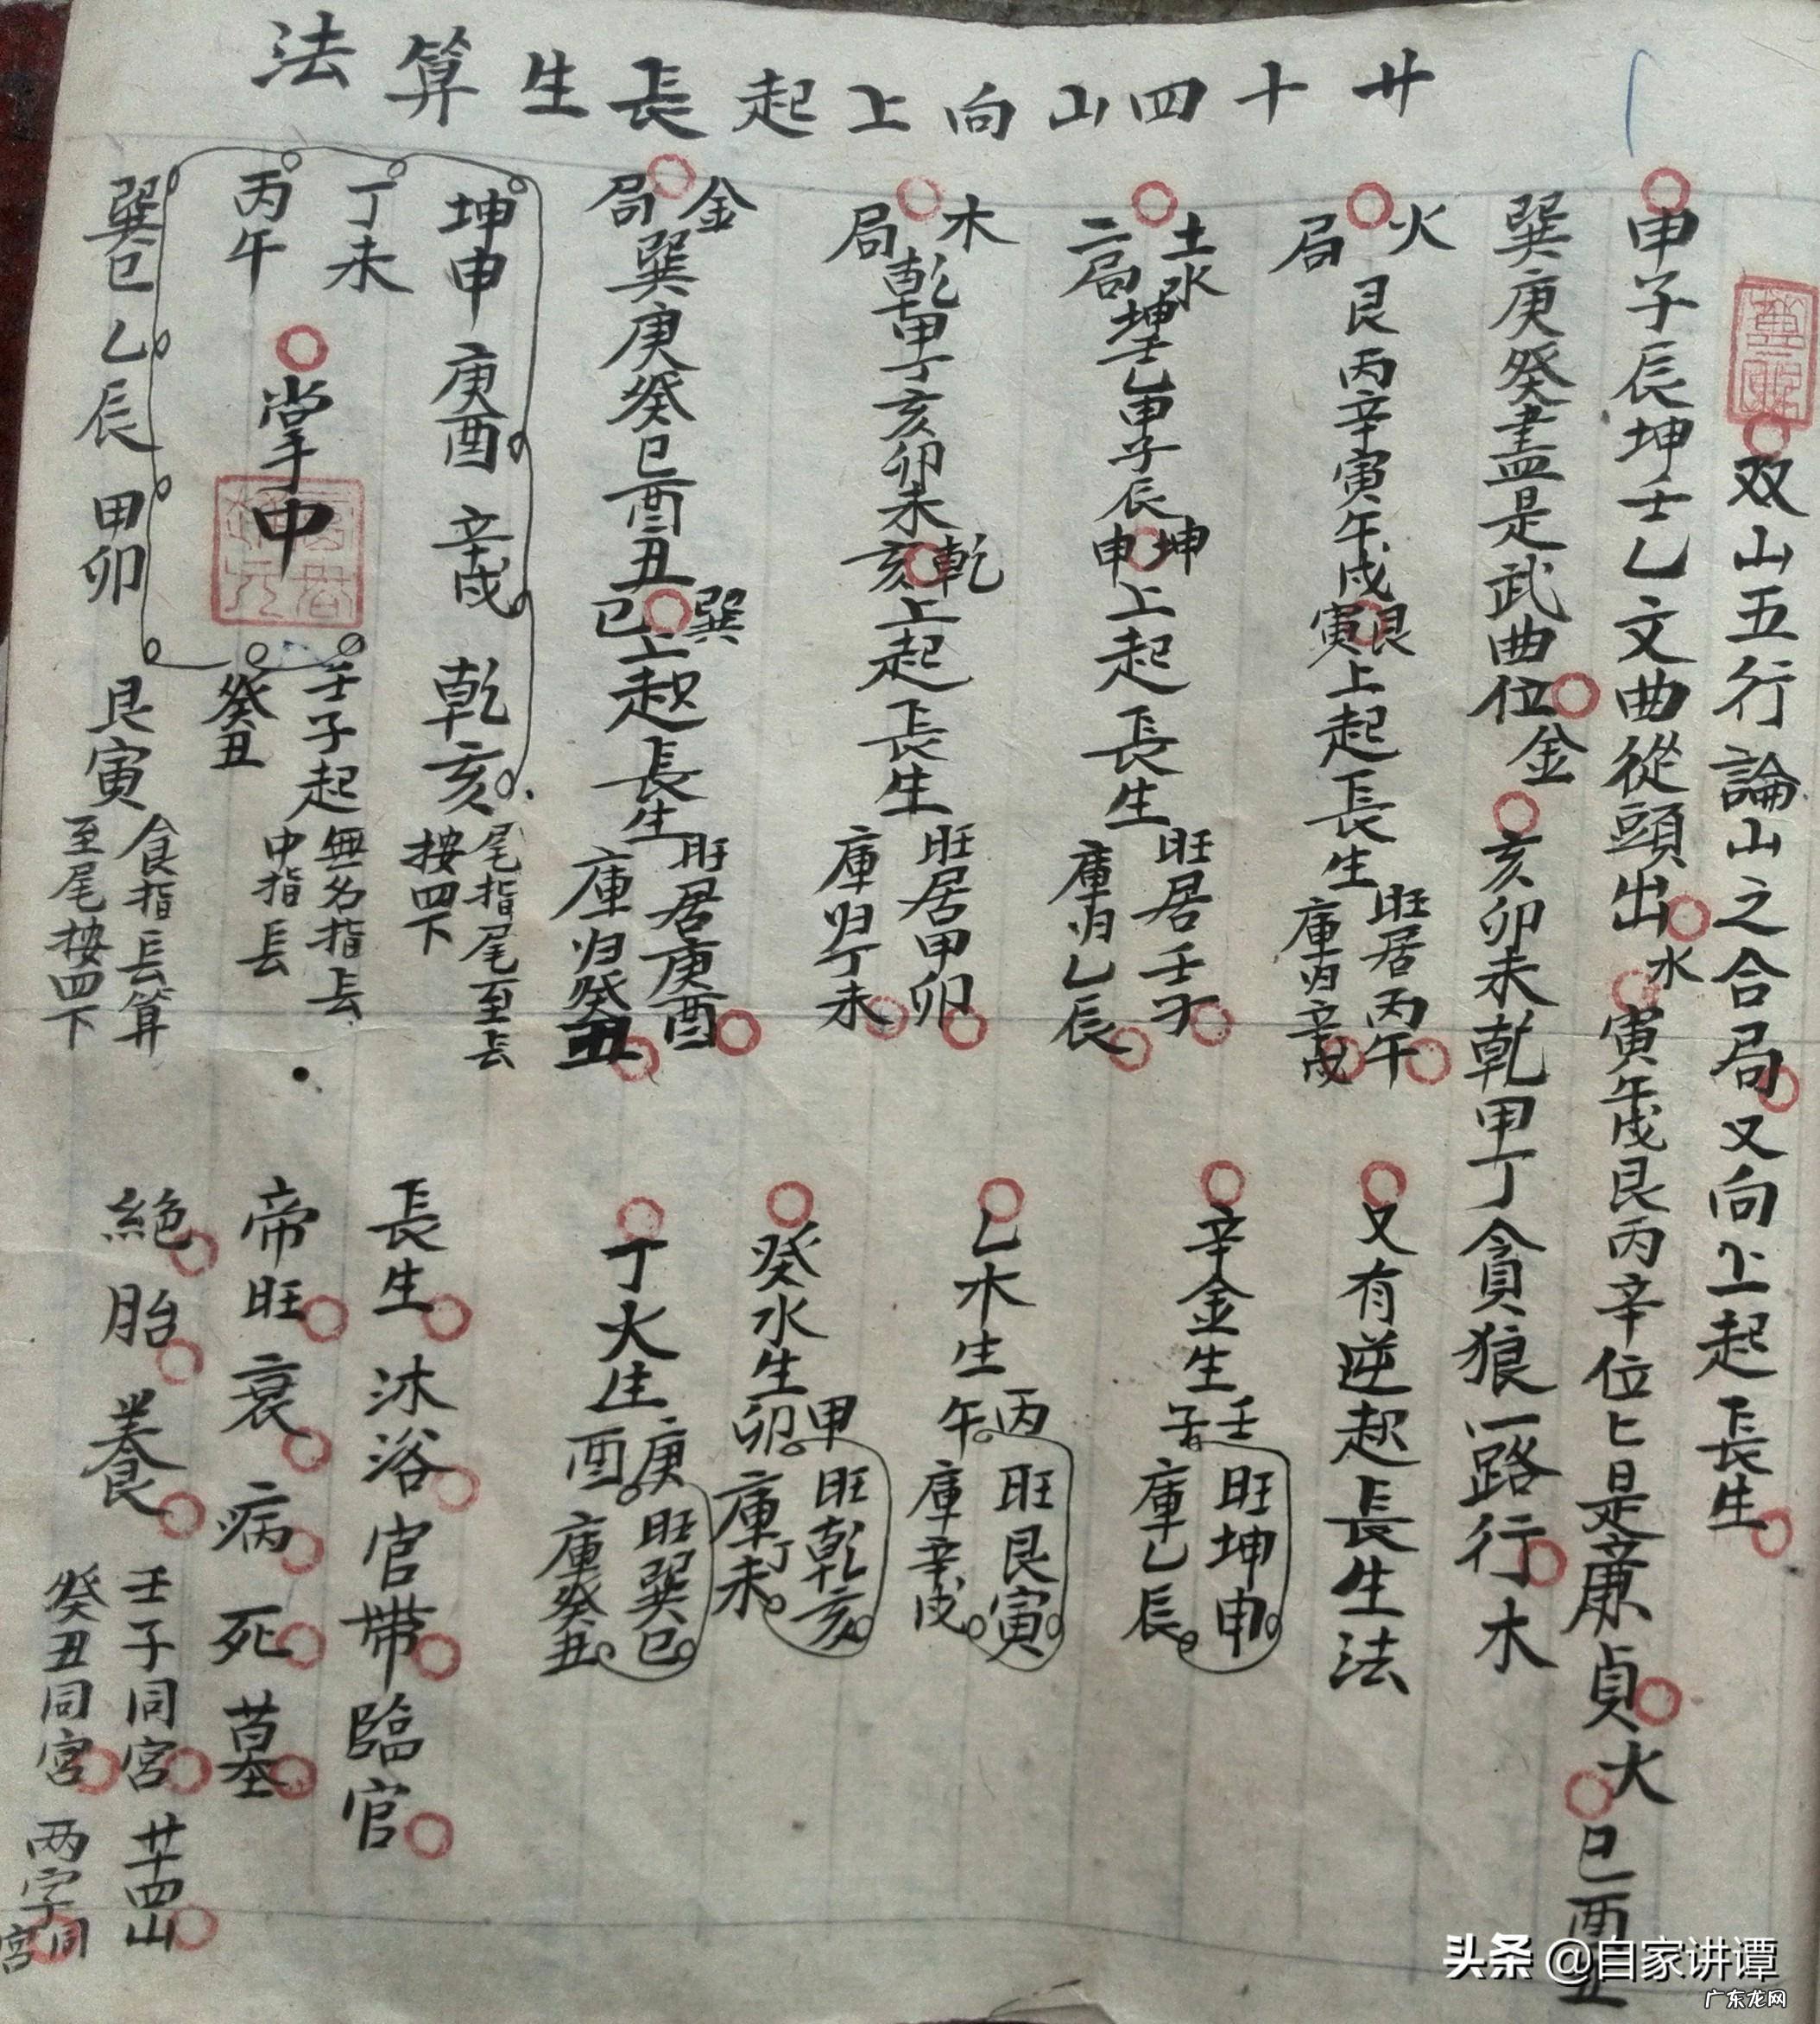 廿十四山向上起長生算法
双山五行論山之合局又向上起長生
申子辰坤壬乙文曲從頭出水寅午戌艮丙辛位上是廉貞火巳酉丑
巽庚癸盡是武曲位金亥卯未乾甲丁貪狼一路行木
火局艮丙辛寅午戌艮寅上起長生旺居丙午庫归辛戌
又有逆起長生法
土水二局坤壬乙申子辰坤申上起長生旺居壬子庫归乙辰
辛金生壬子旺坤申庫乙辰
木局乾甲丁亥卯未乾亥上起長生旺居甲卯庫归丁未
乙木生丙午旺艮寅庫辛戌
金局巽庚癸巳酉丑巽巳上起長生旺居庚酉庫归癸丑
癸水生甲卯旺乾亥庫丁未
丁火生庚酉旺巽巳庫癸丑
坤申庚酉辛戌乾亥尾指尾至長按四下
丁未
丙午
掌中
壬子起無名指長
癸丑中指長
巽巳乙辰甲卯艮寅食指長算至尾按四下
長生沐浴官帶臨官
帝旺衰病死墓
絕胎養
壬子同宮廿四山
癸丑同宮两字同宮
头条 @自家讲谭
广东龙网